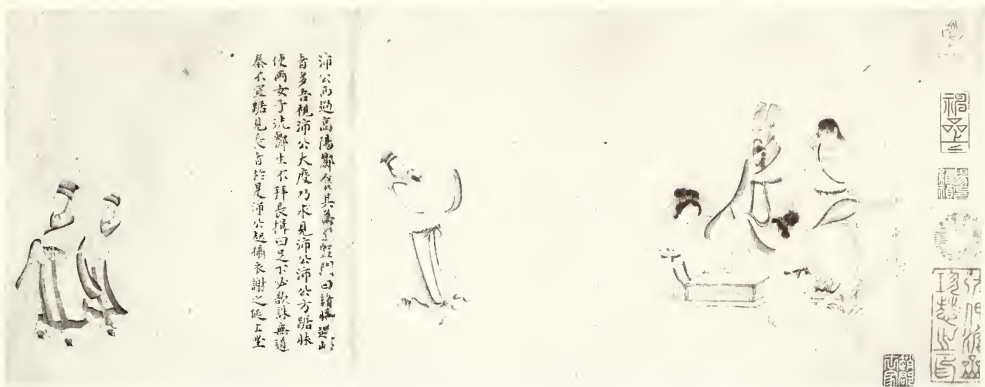 沛公西過高陽酈食其為里監門曰諸將過此
者多吾視沛公大度乃求見沛公沛公方踞牀
使兩女子洗酈生不拜長揖曰足下必欲誅無道
秦不宜踞見長者於是沛公起攝衣謝之延上坐